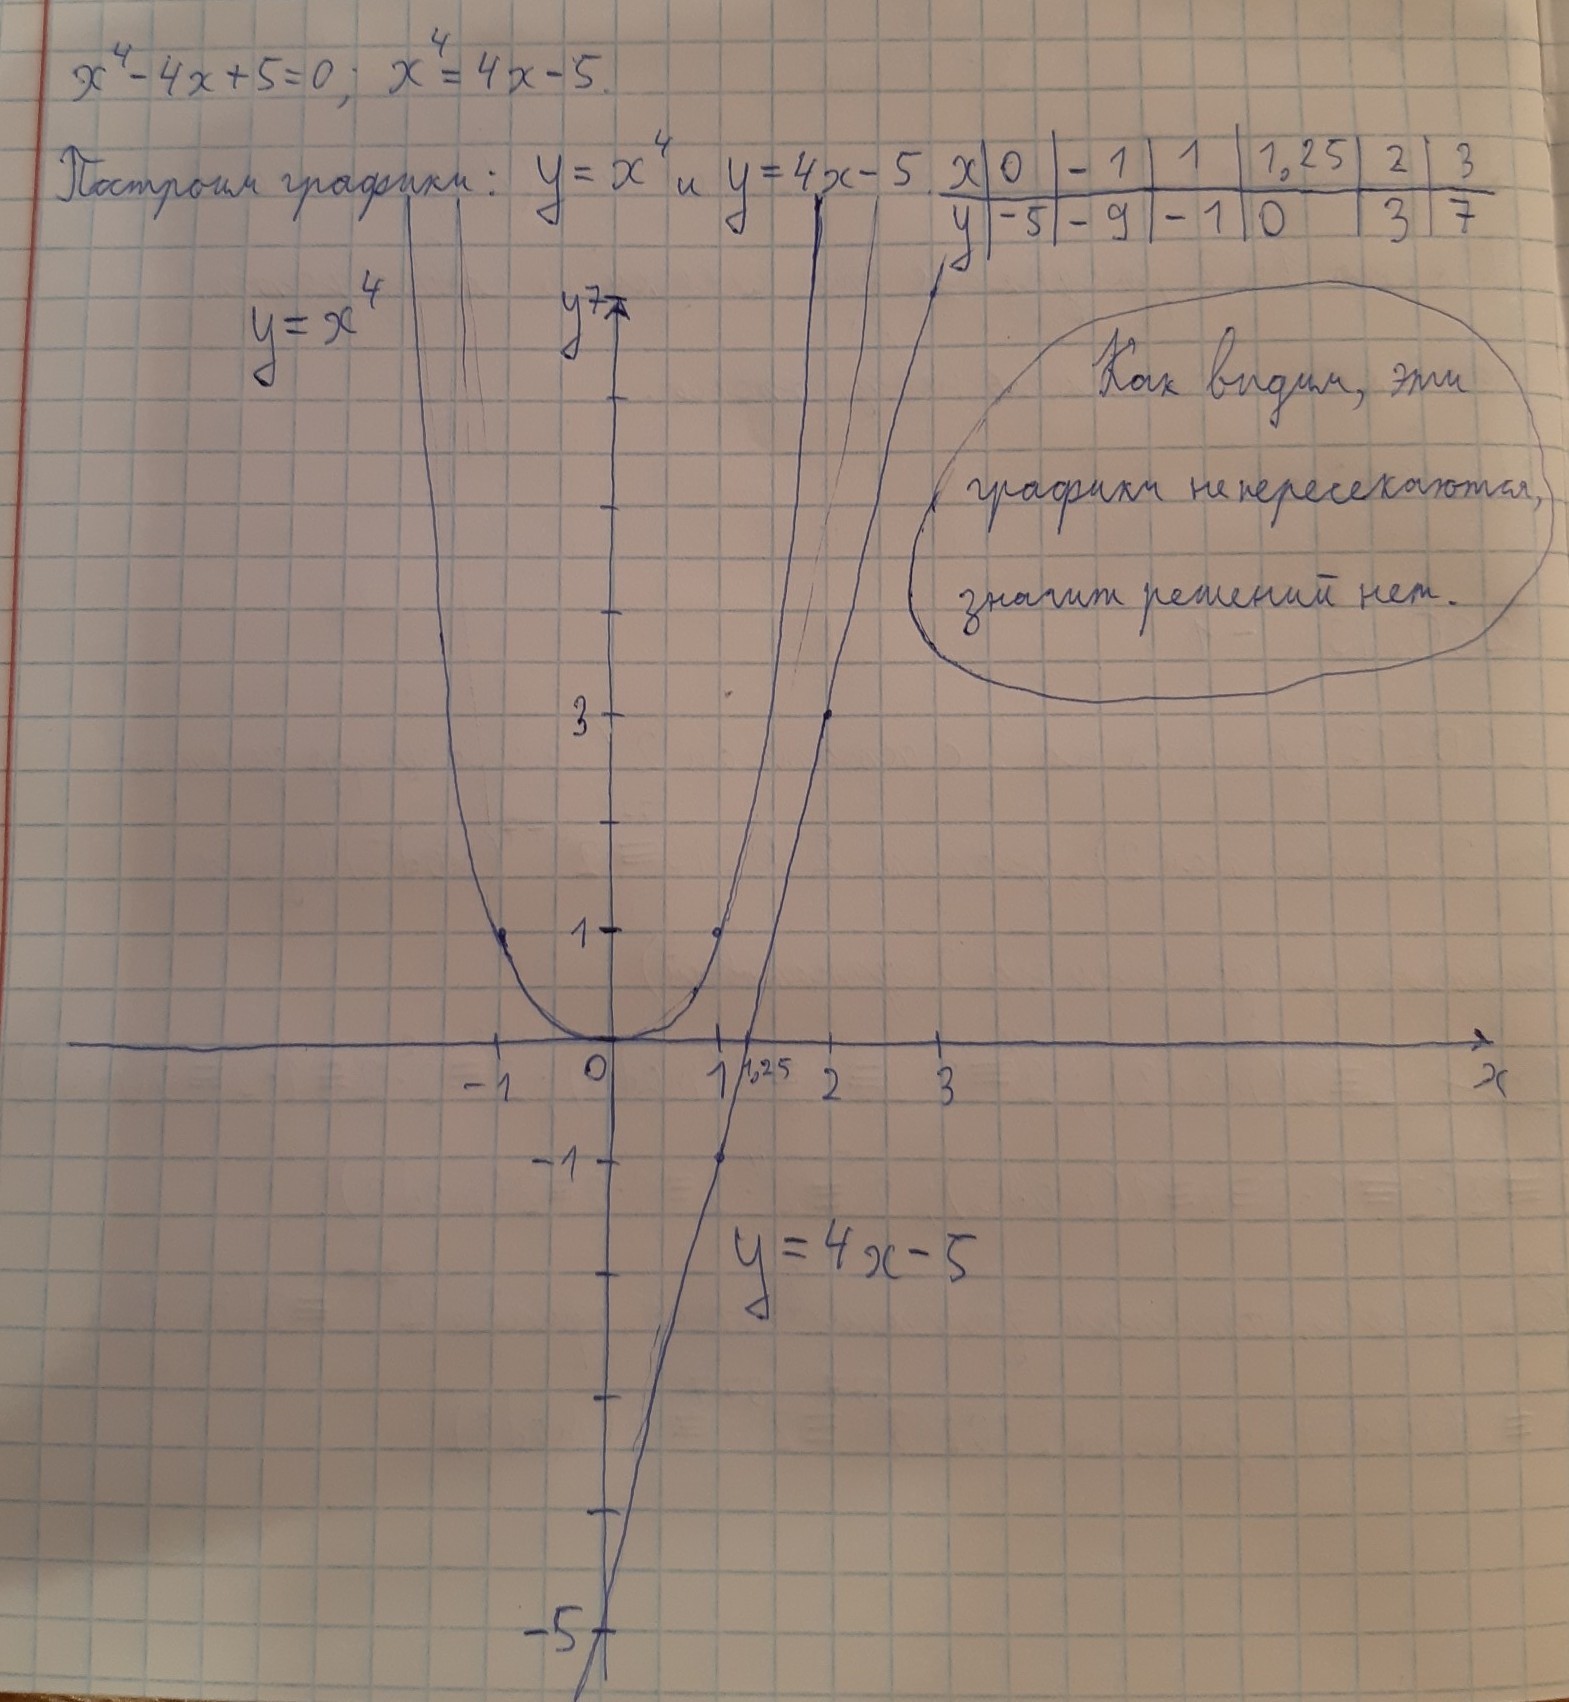 x⁴-4x+5=0; x⁴=4x-5.
Построим графики: y=x⁴ и y=4x-5. x|0|-1|1|1,25|2|3
y|-5|-9|-1|0|3|7
y=x⁴
y 7
Как видим, эти
графики не пересекаются,
значит решений нет.
3
1
-1 0 1 1,25 2 3 x
-1
y=4x-5
-5